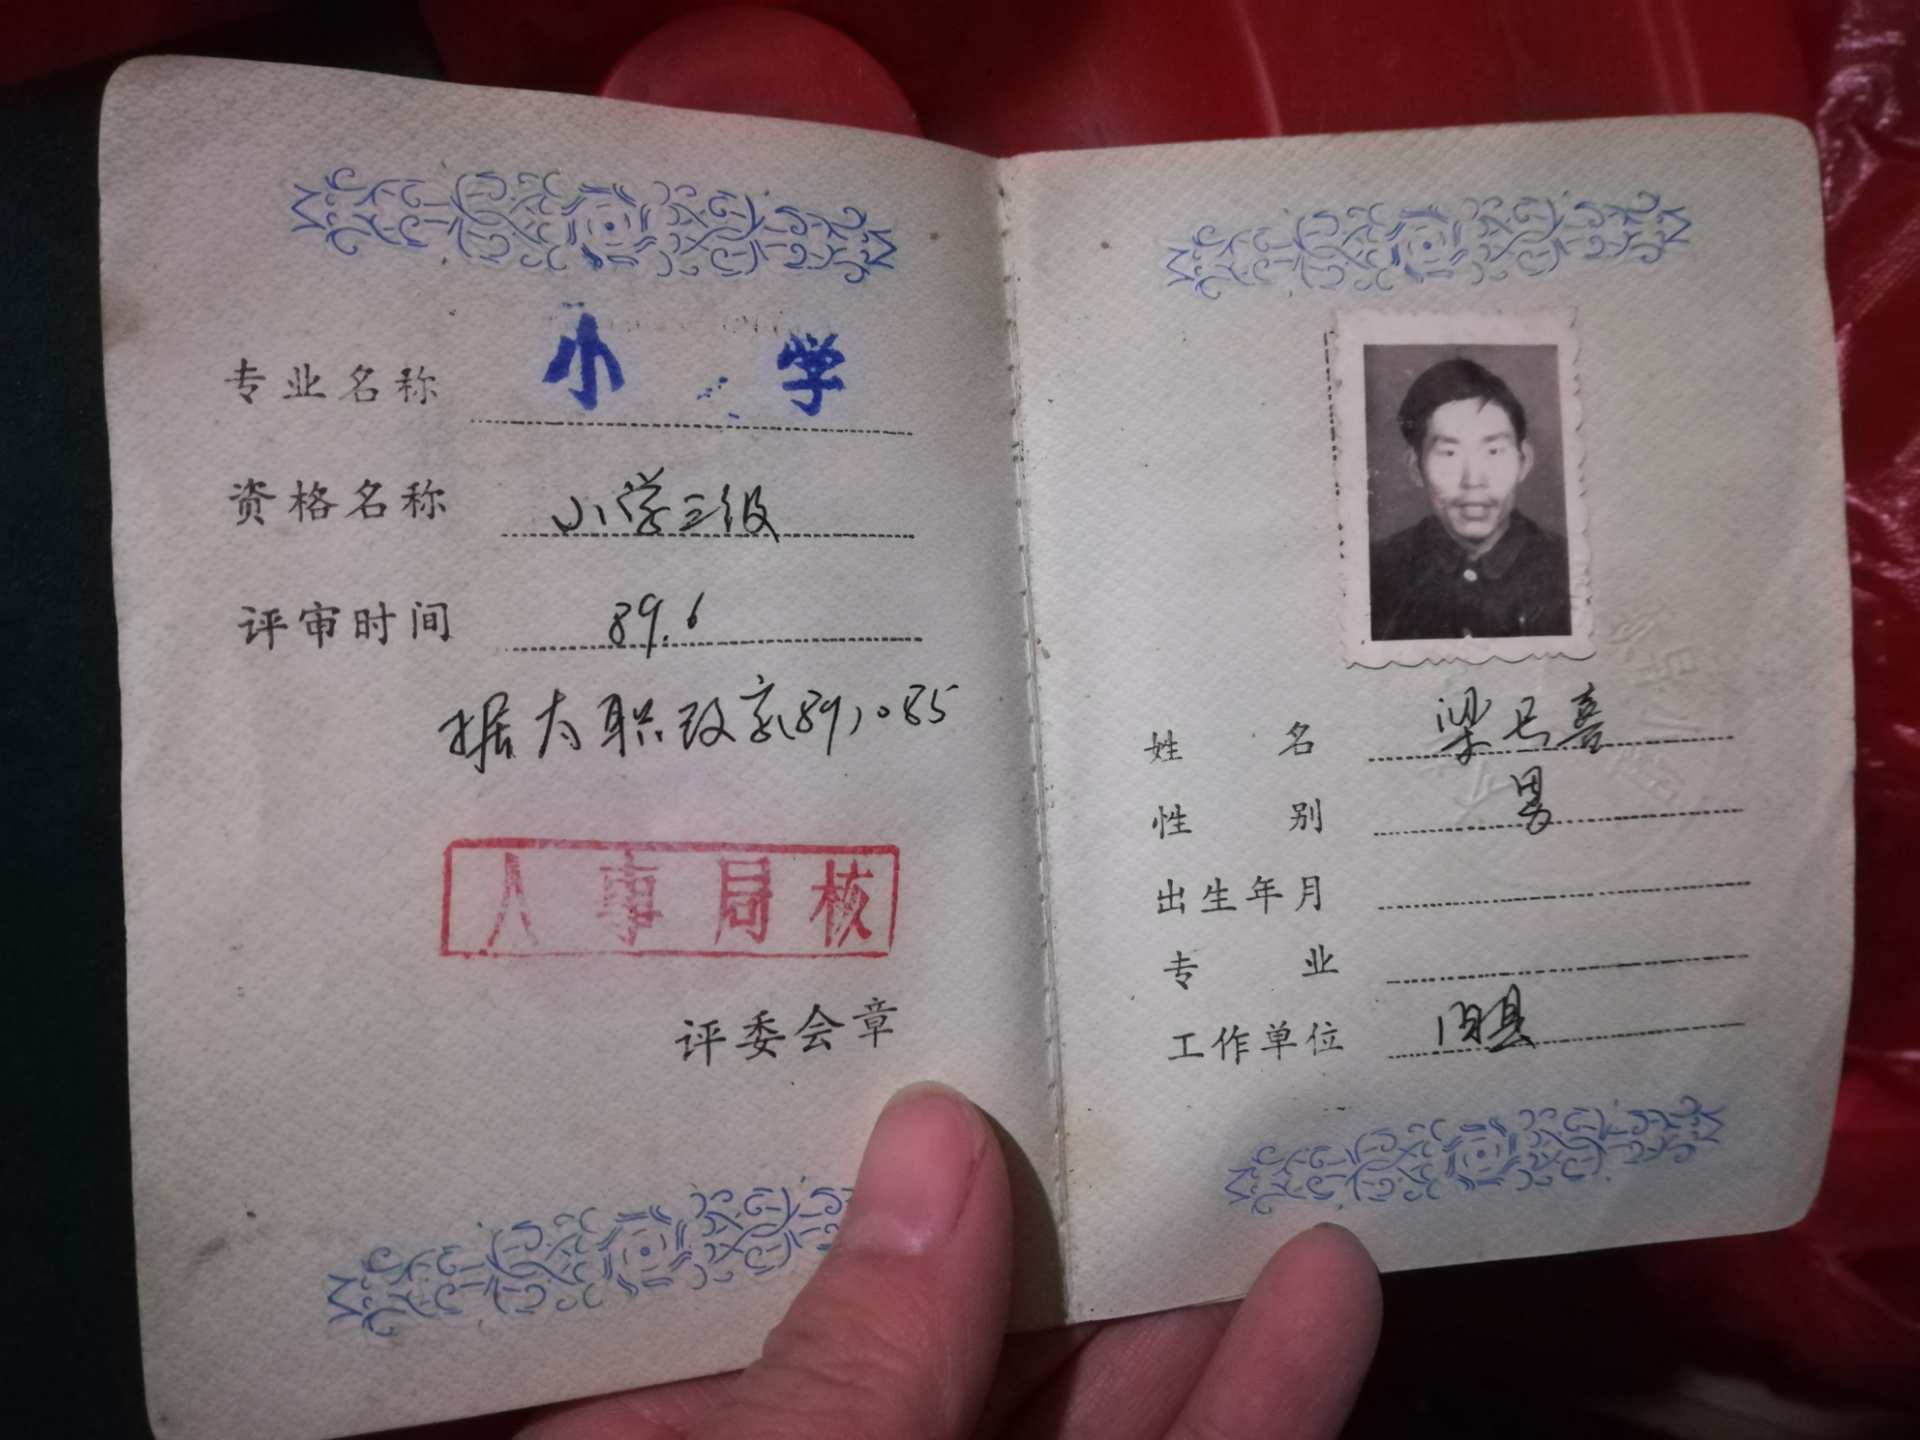 专业名称 小学
资格名称 小学三级
评审时间 89.6
据 职改字(89)085
人事局核
评委会章
姓名 梁 喜
性别 男
出生年月
专业
工作单位 县